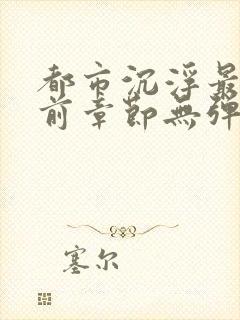 都市沉浮最
前章節無彈
塞尔